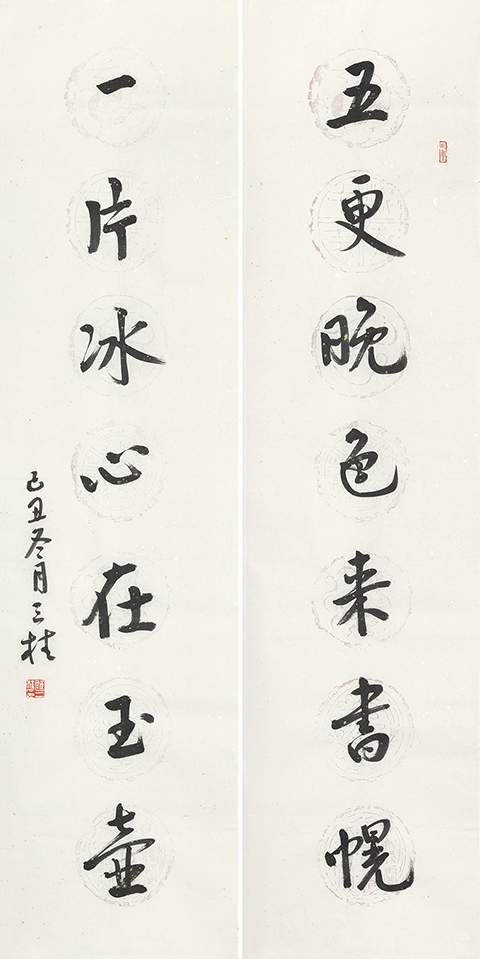 五更晚色来書幌
一片冰心在玉壺
己丑冬月三桂